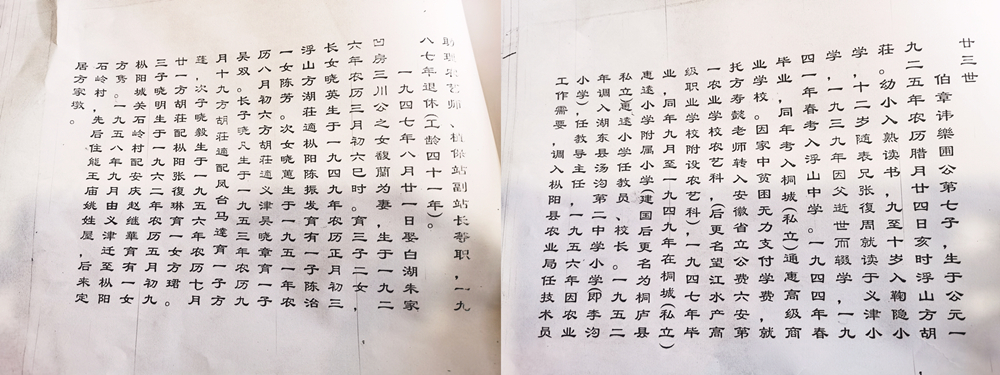 廿三世
伯章讳樂圃公第七子，生于公元一
九二五年农历腊月廿四日亥时浮山方胡
莊。幼小入熟读书，九至十岁入鞠隐小
学，十二岁随表兄张復周就读于义津小
学，一九三九年因父逝世而辍学，一九
四一年春考入浮山中学。一九四四年春
毕业，同年考入桐城(私立)通惠高级商
业学校。因家中贫困无力支付学费，就
托方寿懿老师转入安徽省立公费六安第
一农业学校农艺科，(后更名望江水产高
级职业学校附设农艺科)，一九四七年毕
业，同年九月至一九四九年在桐城(私立)
惠遠小学附属小学(建国后更名为桐庐县
私立惠遠小学任教员、校长。一九五二
年调入湖东县汤沟第二中学小学(即李沟
小学)，任教导主任，一九五六年因农业
工作需要，调入枞阳县农业局任技术员
助理农艺师、植保站副站长等职，一九
八七年退休(工龄四十一年)。
一九四七年八月廿一日娶白湖朱家
凹房三川公之女馥蘭为妻，生于一九二
六年农历三月初六巳时。子二女二，
长女晓英生于一九四九年农历正月初三
浮山方湖莊適枞阳陈振发育有一子陈治
一女陈芳。次女晓蕙生于一九五一年农
历八月初六方胡莊適义津吴晓章育一子
吴双。长子晓凡生于一九五三年农历九
月十九方胡莊適配凤台马達育一子方
莲，次子晓毅生于一九五六年农历七月
廿一方胡莊配枞阳張復琳育一女方珺。
三子晓明生于一九六二年农历五月初九
枞阳城关石岭村配安庆赵继華育有一女
方隽。一九五八年九月由义津迁至枞阳
石岭村，先后住能王庙姚姓屋，后来定
居方家墩。